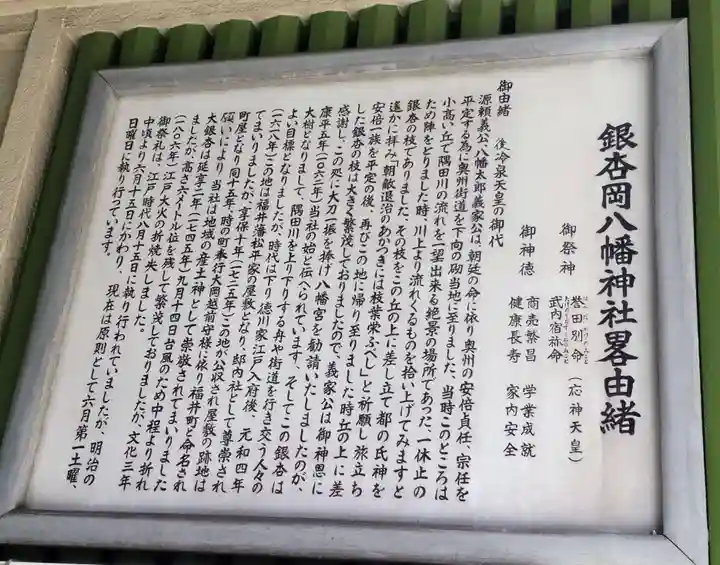 銀杏岡八幡神社畧由緒
御祭神 誉田別命(応神天皇)
武内宿祢命
御神徳 商売繁昌 学業成就
健康長寿 家内安全
御由緒 後冷泉天皇の御代
源頼義公、八幡太郎義家公は、朝廷の命に依り奥州の安倍貞任、宗任を
平定する為に奥州街道を下向の砌当地に至りました、当時このところは
小高い丘で隅田川の流れを一望出来る絶景の場所であった、一休止の
ため陣をとりました時、川上より流れくるものを拾い上げてみますと
銀杏の枝でありました。その枝をこの丘の上に差し立て都の氏神を
遥かに拝み「朝敵退治のあかつきには枝葉栄ふべし」と祈願し旅立ち
安倍一族を平定の後、再びこの地に帰り至りました時丘の上に差
した銀杏の枝は大きく繁茂しておりましたので、義家公は御神恩に
感謝し、この処に大刀一振を捧げ八幡宮を勧請いたしましたのが、
康平五年(一〇六二)当社の始と伝へられています、そしてこの銀杏は
大樹となりまして、隅田川を上り下りする舟や街道を行き交う人々の
よい目標となりましたが、時代は下り徳川家江戸入府後、元和四年
(一六一八)この地は福井藩松平家の屋敷となり、邸内社として尊崇され
てまいりましたが、享保十年(一七二五)この地が公収され屋敷の跡地は
町屋となり同十五年、時の町奉行大岡越前守様に依り福井町と命名され
願いにより当社は地域の産土神として崇敬されてまいりました
大銀杏は延享二年(一七四五)九月十四日台風のため中程より折れ
ましたが、高さ六メートル位を残して繁茂しておりましたが、文化三年
(一八〇六)江戸大火の折焼失しました。
御祭礼は、江戸時代八月十五日に執り行われていましたが、明治の
中頃より六月十五日にかわり、現在は原則として六月第一土曜、
日曜日に執り行っています。